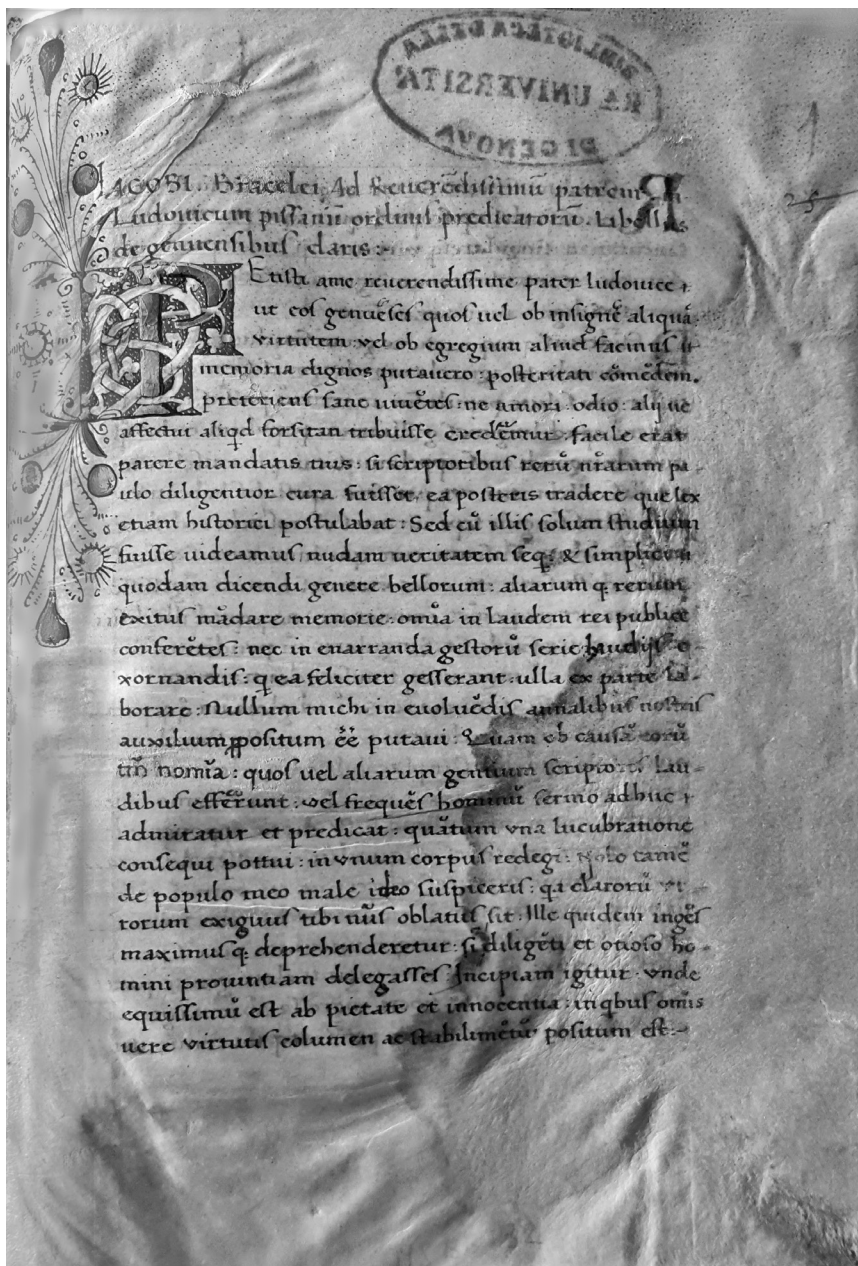 BIBLIOTECA DELLA
RA UNIVERSITÀ
DI GENOVA
1
25
IACOBI. Bracelei Ad Reuerēdissimū patrem
Ludouicum pissanū ordinis predicatorū. Libellus
de genuensibus claris:~
PEtisti a me reuerendissime pater ludouice
ut eos genuēses quos uel ob insignē aliquā
virtutem: vel ob egregium aliud facinus
memoria dignos putauero: posteritati cōmēdem.
preteriens sane uiuētes: ne amori odio: alij ue
affectui aliqd forsitan tribuisse credēmur. facile erat
parere mandatis tuis: si scriptoribus rerū nrārum pa-
ulo diligentior cura fuisset, ea posteris tradere que lex
etiam historici postulabat: Sed cū illis solum studium
fuisse uideamus, nudam ueritatem seq: & simplici
quodam dicendi genere bellorum: aliarum q; rerum
exitus mādare memorie: omīa in laudem rei publice
conferētes: nec in enarranda gestorū serie laudijs e-
xornandis: q ea feliciter gesserant: ulla ex parte la-
borare: Nullum michi in euoluēdis annalibus nostris
auxilium ppositum eē putaui: Quam ob causā eorū
tm̄ nomīa: quos uel aliarum gentium scriptores lau-
dibus efferunt: vel frequēs hominū sermo adhuc
admiratur et predicat: quātum vna lucubratione
consequi pottui: in vnum corpus redegi: Nolo tamē
de populo meo male ideo suspiceris: qa clarorū vi-
rorum exiguus tibi nūs oblatus sit. Ille quidem ingēs
maximus q; deprehenderetur: si diligēti et otioso ho-
mini prouintiam delegasses Incipiam igitur vnde
equissimū est ab pietate et innocentia: in qbus omīs
uere virtutis columen ac stabilimētū positum est:~